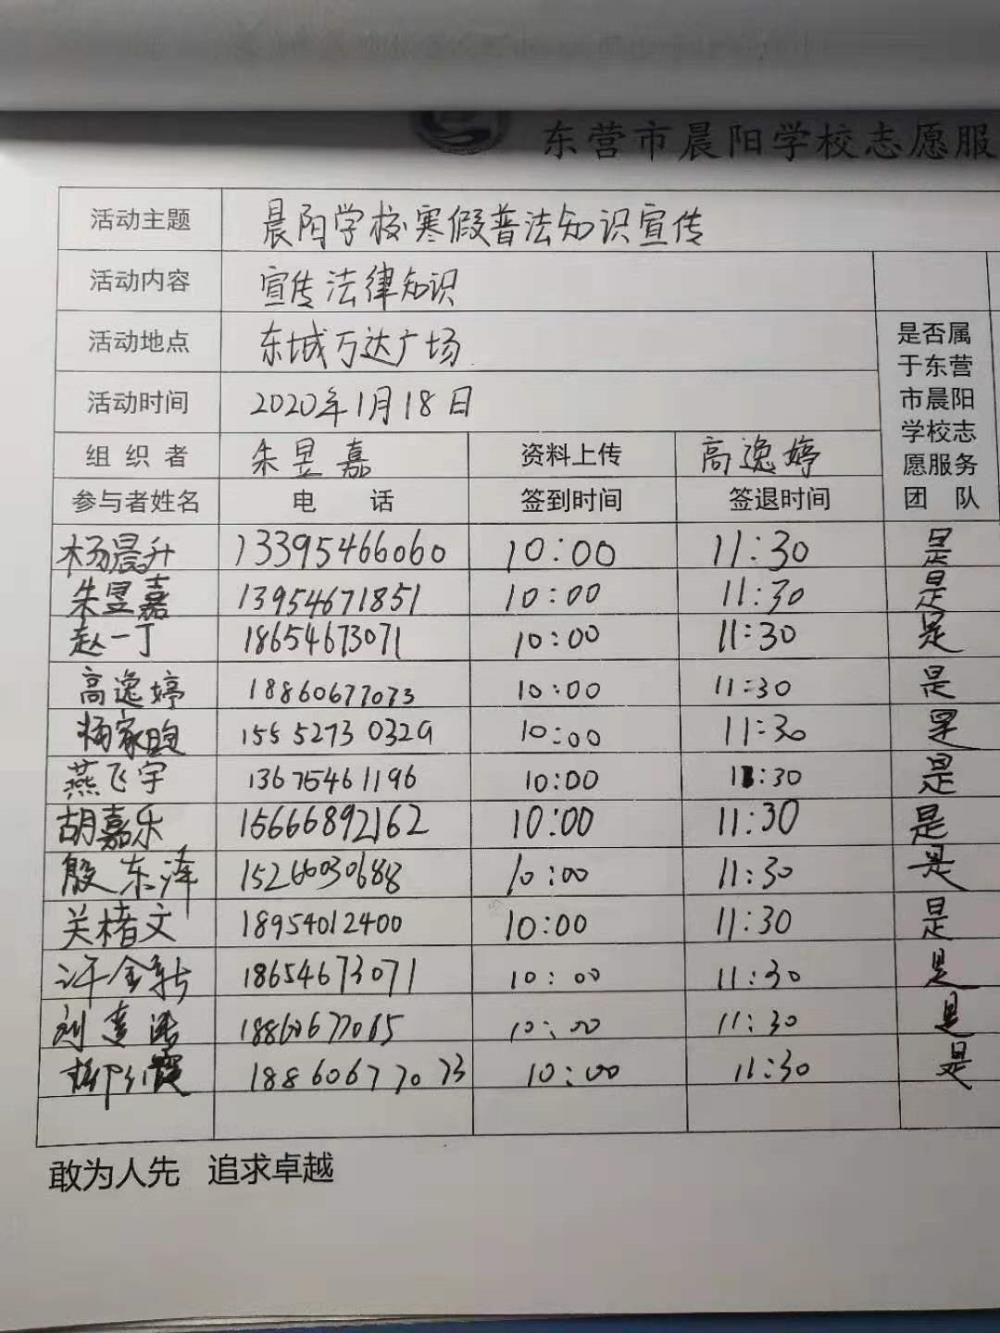 东营市晨阳学校志愿服
活动主题 晨阳学校寒假普法知识宣传
活动内容 宣传法律知识
活动地点 东城万达广场
活动时间 2020年1月18日
是否属于东营市晨阳学校志愿服务团队
组织者 朱昱嘉 资料上传 高逸婷
参与者姓名 电话 签到时间 签退时间
杨晨升 13395466060 10:00 11:30 是
朱昱嘉 13954671851 10:00 11:30 是
赵一丁 18654673071 10:00 11:30 是
高逸婷 18860677073 10:00 11:30 是
杨家煦 155 5273 0329 10:00 11:30 是
燕飞宇 13675461196 10:00 11:30 是
胡嘉乐 15666892162 10:00 11:30 是
殷东泽 10:00 11:30 是
关楮文 18954012400 10:00 11:30 是
许金新 18654673071 10:00 11:30 是
刘 18860677065 10:00 11:30 是
柳红霞 18860677073 10:00 11:30 是
敢为人先 追求卓越